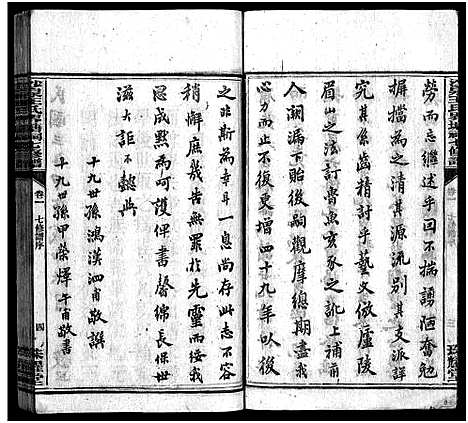 勞而忘繼述乎回不揣謭陋奮勉
摒擋為之清其源流別其支派詳
究其條齒精討乎藝文倣廬陵
眉山之法訂魯魚亥豕之訛上補前
人闕漏下貽後嗣觀摩總期盡我
心而止不必後東增四十九年以後
之非斯為幸斗一息尚存此志不容
稍懈庶幾告無罪於先靈而後我
思成點焉呵護俾書馨綿長保世
滋大詎不懿與
十九世孫鴻漢泗甫敬譔
十九世孫甲榮燡午甫敬書
卷一
七修譜序
四